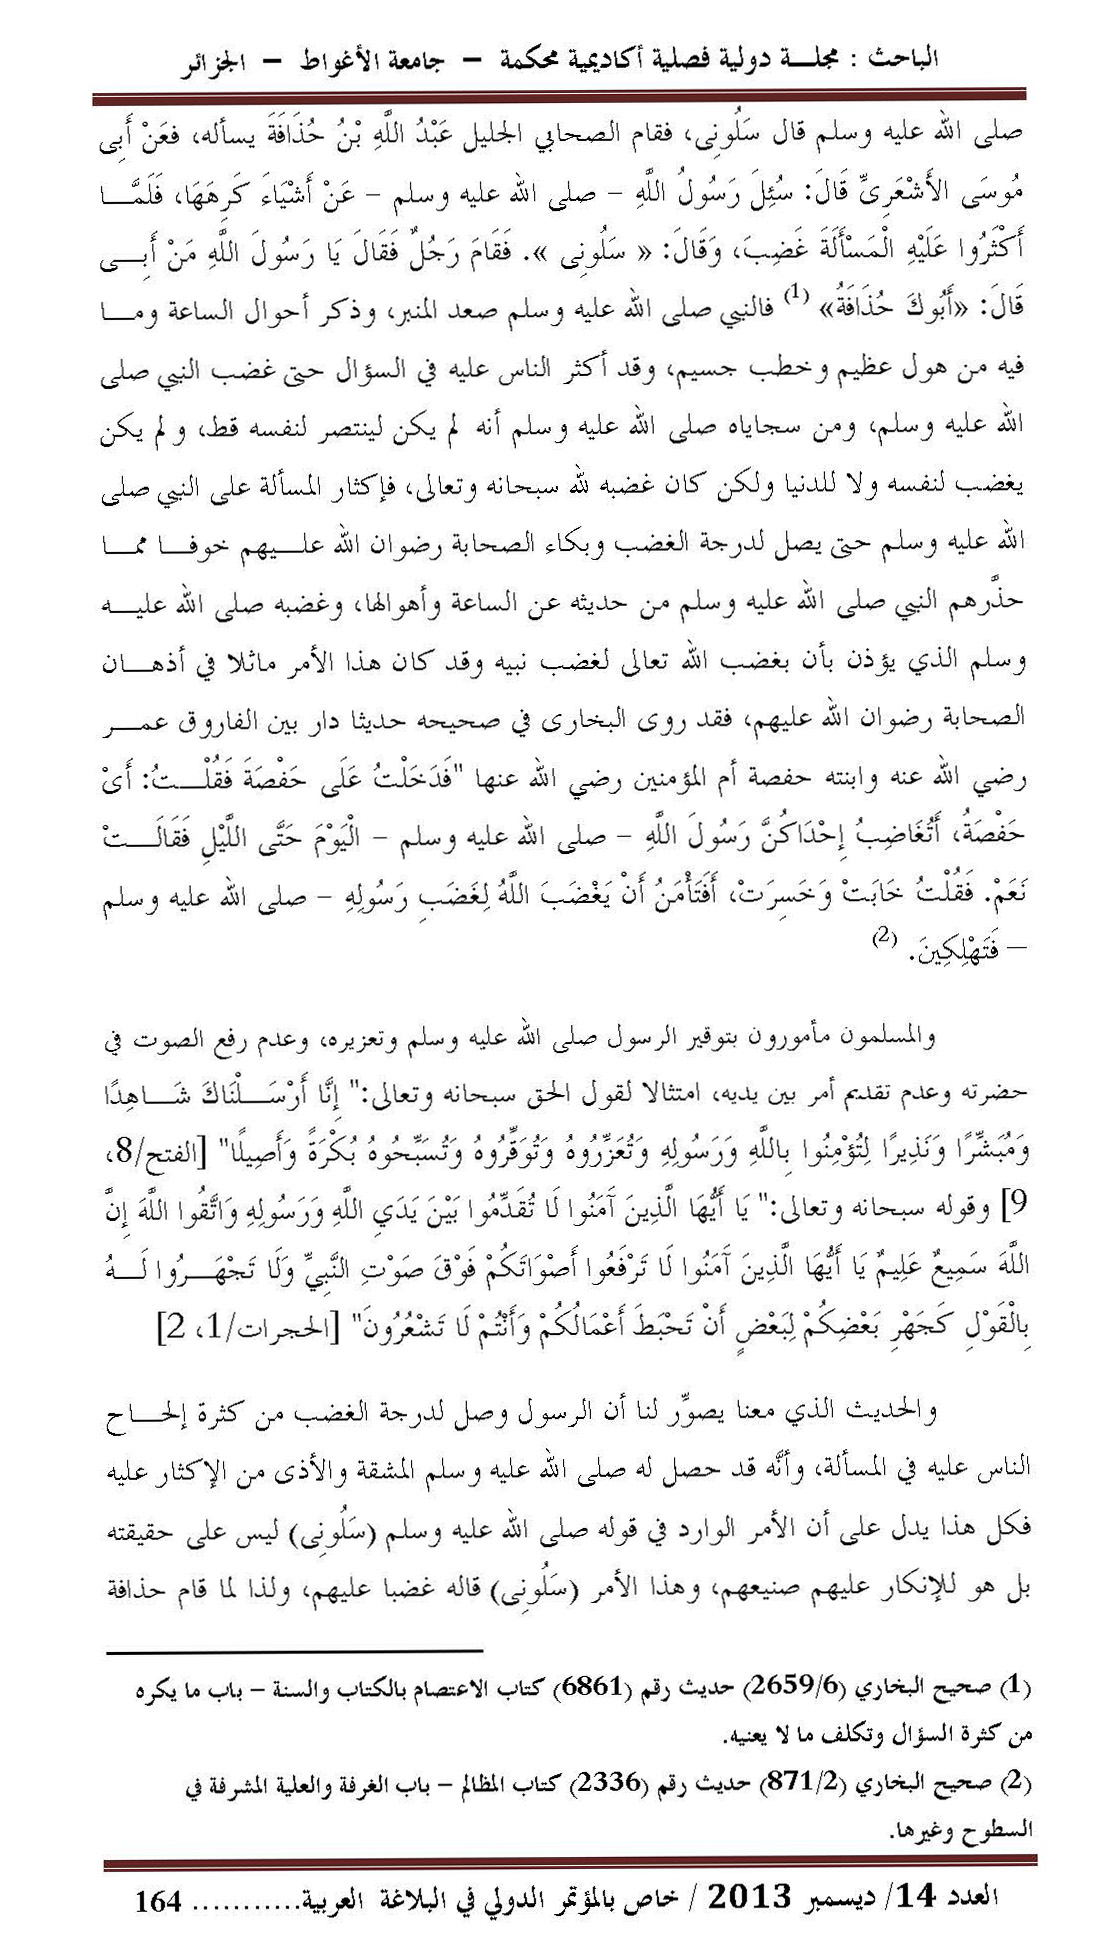 الباحث : مجلة دولية فصلية أكاديمية محكمة – جامعة الأغواط – الجزائر
صلى الله عليه وسلم قال سَلُونِى، فقام الصحابي الجليل عَبْدُ اللَّهِ بْنُ حُذَافَةَ يسأله، فعَنْ أَبِى
مُوسَى الأَشْعَرِىِّ قَالَ: سُئِلَ رَسُولُ اللَّهِ – صلى الله عليه وسلم – عَنْ أَشْيَاءَ كَرِهَهَا، فَلَمَّا
أَكْثَرُوا عَلَيْهِ الْمَسْأَلَةَ غَضِبَ، وَقَالَ: « سَلُونِى ». فَقَامَ رَجُلٌ فَقَالَ يَا رَسُولَ اللَّهِ مَنْ أَبِى
قَالَ: «أَبُوكَ حُذَافَةُ» (1) فالنبي صلى الله عليه وسلم صعد المنبر، وذكر أحوال الساعة وما
فيه من هول عظيم وخطب جسيم، وقد أكثر الناس عليه في السؤال حتى غضب النبي صلى
الله عليه وسلم، ومن سجاياه صلى الله عليه وسلم أنه لم يكن لينتصر لنفسه قط، ولم يكن
يغضب لنفسه ولا للدنيا ولكن كان غضبه لله سبحانه وتعالى، فإكثار المسألة على النبي صلى
الله عليه وسلم حتى يصل لدرجة الغضب وبكاء الصحابة رضوان الله عليهم خوفا مما
حذَّرهم النبي صلى الله عليه وسلم من حديثه عن الساعة وأهوالها، وغضبه صلى الله عليه
وسلم الذي يؤذن بأن بغضب الله تعالى لغضب نبيه وقد كان هذا الأمر ماثلا في أذهان
الصحابة رضوان الله عليهم، فقد روى البخارى في صحيحه حديثا دار بين الفاروق عمر
رضي الله عنه وابنته حفصة أم المؤمنين رضي الله عنها "فَدَخَلْتُ عَلَى حَفْصَةَ فَقُلْتُ: أَىْ
حَفْصَةُ، أَتُغَاضِبُ إِحْدَاكُنَّ رَسُولَ اللَّهِ – صلى الله عليه وسلم – الْيَوْمَ حَتَّى اللَّيْلِ فَقَالَتْ
نَعَمْ. فَقُلْتُ خَابَتْ وَخَسِرَتْ، أَفَتَأْمَنُ أَنْ يَغْضَبَ اللَّهُ لِغَضَبِ رَسُولِهِ – صلى الله عليه وسلم
– فَتَهْلِكِينَ. (2)
والمسلمون مأمورون بتوقير الرسول صلى الله عليه وسلم وتعزيره، وعدم رفع الصوت في
حضرته وعدم تقديم أمر بين يديه، امتثالا لقول الحق سبحانه وتعالى:" إِنَّا أَرْسَلْنَاكَ شَاهِدًا
وَمُبَشِّرًا وَنَذِيرًا لِتُؤْمِنُوا بِاللَّهِ وَرَسُولِهِ وَتُعَزِّرُوهُ وَتُوَقِّرُوهُ وَتُسَبِّحُوهُ بُكْرَةً وَأَصِيلًا" [الفتح/8،
9] وقوله سبحانه وتعالى:" يَا أَيُّهَا الَّذِينَ آمَنُوا لَا تُقَدِّمُوا بَيْنَ يَدَيِ اللَّهِ وَرَسُولِهِ وَاتَّقُوا اللَّهَ إِنَّ
اللَّهَ سَمِيعٌ عَلِيمٌ يَا أَيُّهَا الَّذِينَ آمَنُوا لَا تَرْفَعُوا أَصْوَاتَكُمْ فَوْقَ صَوْتِ النَّبِيِّ وَلَا تَجْهَرُوا لَهُ
بِالْقَوْلِ كَجَهْرِ بَعْضِكُمْ لِبَعْضٍ أَنْ تَحْبَطَ أَعْمَالُكُمْ وَأَنْتُمْ لَا تَشْعُرُونَ" [الحجرات/1، 2]
والحديث الذي معنا يصوِّر لنا أن الرسول وصل لدرجة الغضب من كثرة إلحاح
الناس عليه في المسألة، وأنَّه قد حصل له صلى الله عليه وسلم المشقة والأذى من الإكثار عليه
فكل هذا يدل على أن الأمر الوارد في قوله صلى الله عليه وسلم (سَلُونِى) ليس على حقيقته
بل هو للإنكار عليهم صنيعهم، وهذا الأمر (سَلُونِى) قاله غضبا عليهم، ولذا لما قام حذافة
(1) صحيح البخاري (2659/6) حديث رقم (6861) كتاب الاعتصام بالكتاب والسنة – باب ما يكره
من كثرة السؤال وتكلف ما لا يعنيه.
(2) صحيح البخاري (871/2) حديث رقم (2336) كتاب المظالم – باب الغرفة والعلية المشرفة في
السطوح وغيرها.
العدد 14/ ديسمبر 2013 / خاص بالمؤتمر الدولي في البلاغة العربية........... 164